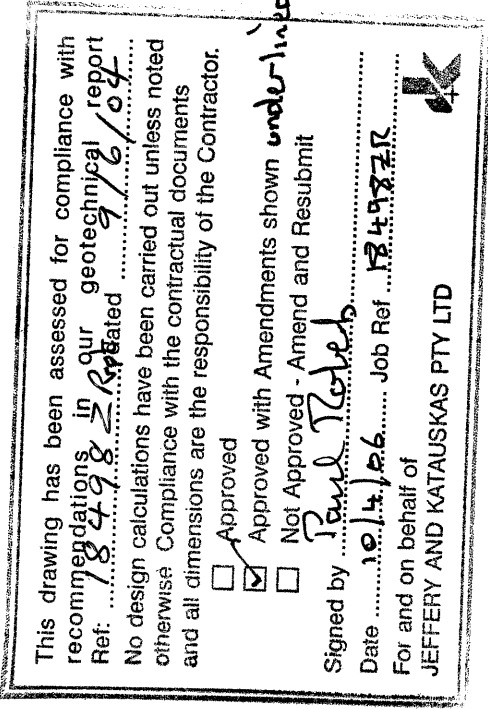 This drawing has been assessed for compliance with
recommendations in our geotechnical report
Ref: 18498ZRpt dated 9/6/04
No design calculations have been carried out unless noted
otherwise Compliance with the contractual documents
and all dimensions are the responsibility of the Contractor.
Approved
Approved with Amendments shown under-lined
Not Approved - Amend and Resubmit
Signed by Paul
Date 10/4/06 Job Ref 18498ZR
For and on behalf of
JEFFERY AND KATAUSKAS PTY LTD
JK